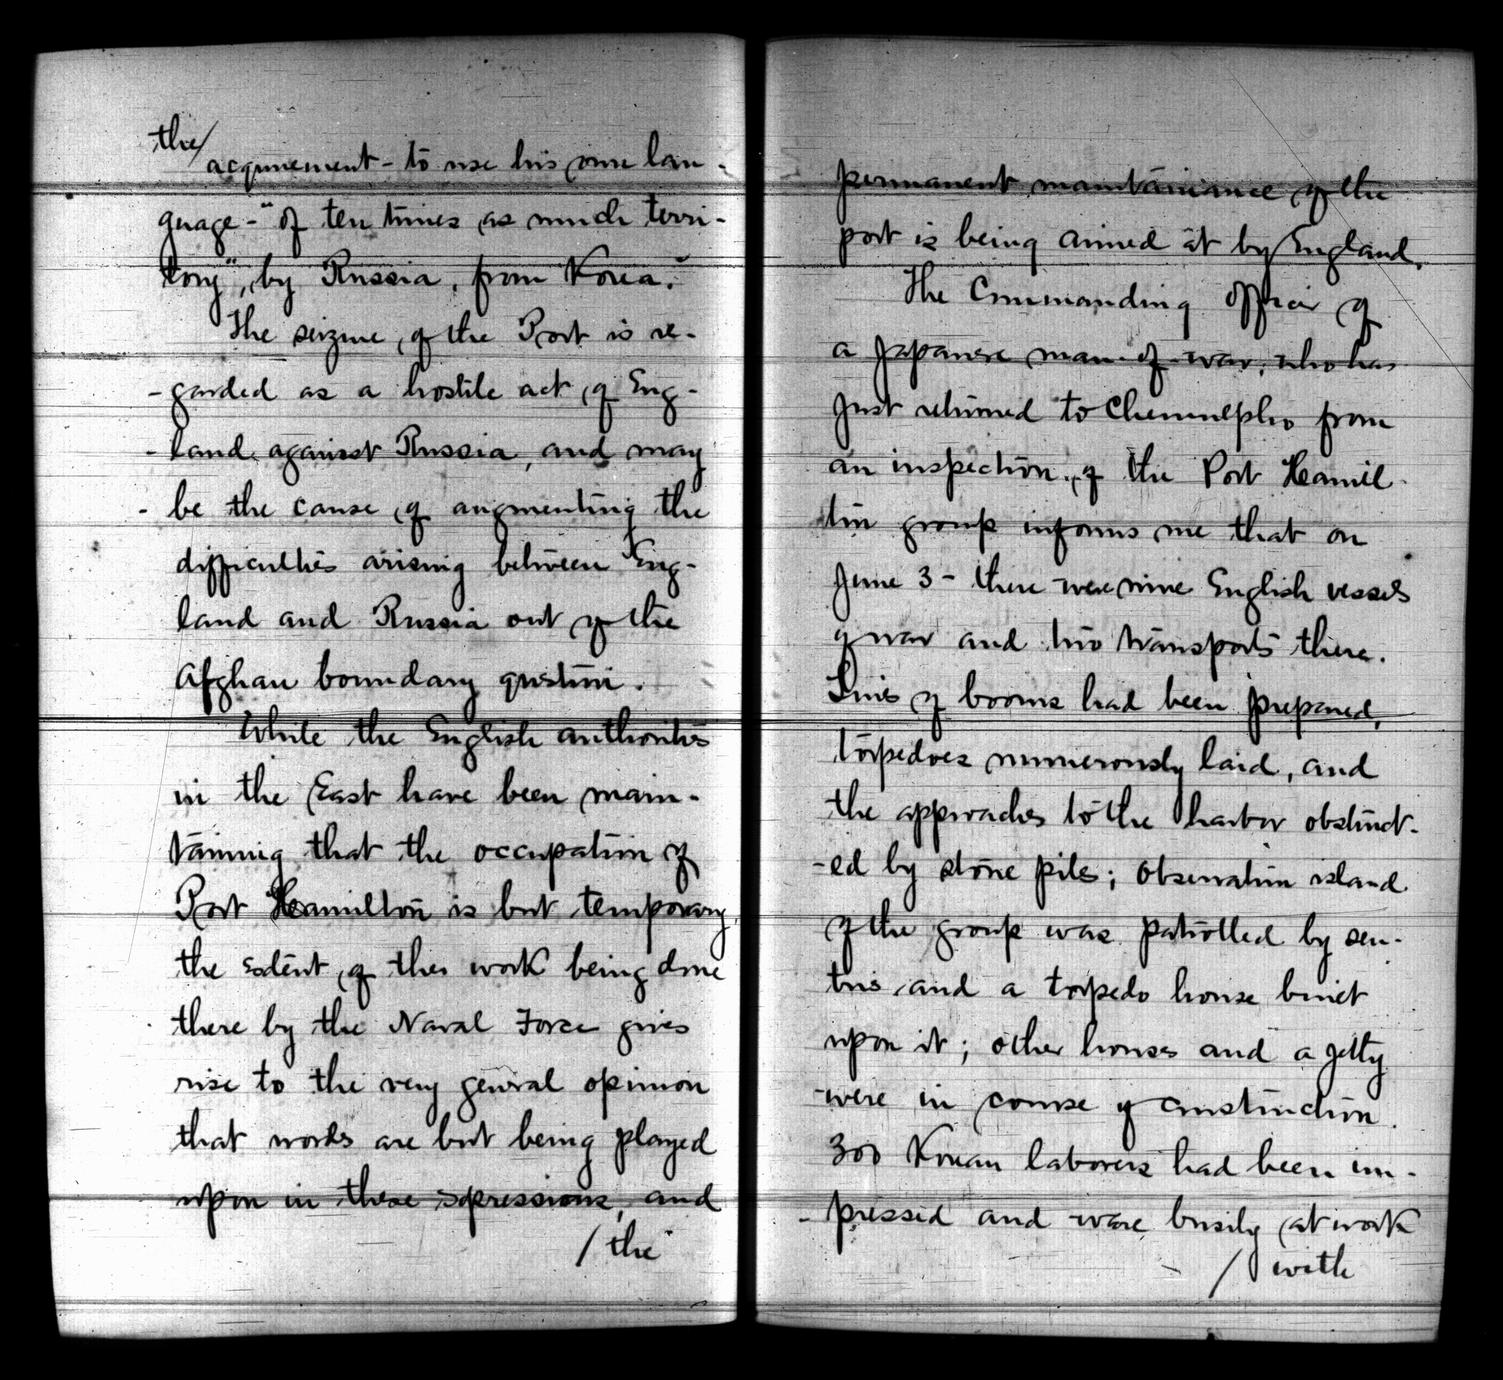 the/
acquirement - to use his own lan-
guage - "of ten times as much terri-
tory", by Russia, from Korea."
The seizure of the Port is re-
-garded as a hostile act of Eng-
-land, against Russia, and may
- be the cause of augmenting the
difficulties arising between Eng-
land and Russia out of the
Afghan boundary question.
While the English authorities
in the East have been main-
taining that the occupation of
Port Hamilton is but temporary,
the extent of the work being done
there by the Naval Force gives
rise to the very general opinion
that words are but being played
upon in these expressions, and
/ the
permanent maintainance of the
port is being aimed at by England.
The Commanding Officer of
a Japanese man-of-war, who has
just returned to Chemulpho from
an inspection of the Port Hamil-
ton group informs me that on
June 3 - there were nine English vessels
of war and two transports there.
Lines of booms had been prepared,
torpedoes numerously laid, and
the approaches to the harbor obstruct-
-ed by stone piles; Observation island
of the group was patrolled by sen-
tries and a torpedo house built
upon it; other houses and a jetty
were in course of construction.
300 Korean laborers had been im-
-pressed and were busily at work
/ with